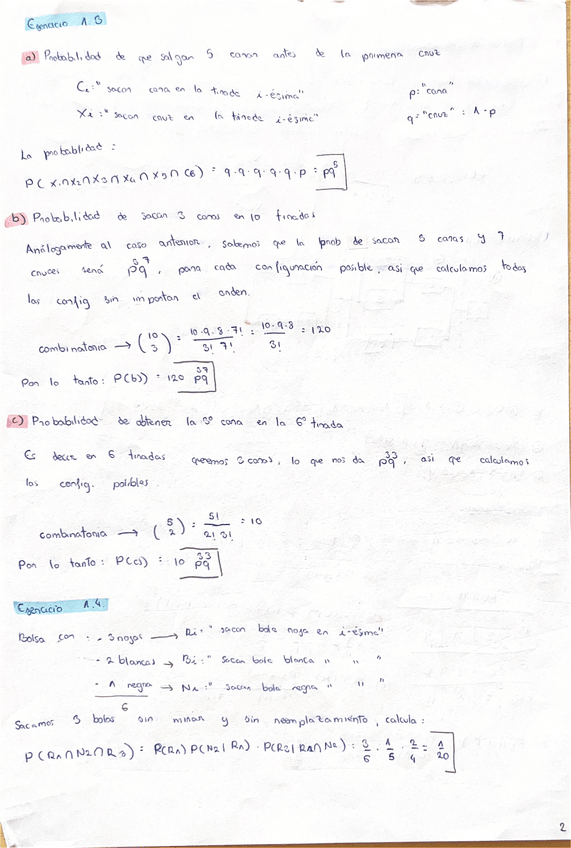 Ejercicio 1.3
a) Probabilidad de que salgan 5 caras antes de la primera cruz
Ci: "sacar cara en la tirada i-ésima" p: "cara"
Xi: "sacar cruz en la tirada i-ésima" q: "cruz" : 1-p
La probabilidad :
P(X1∩X2∩X3∩X4∩X5∩C6) = q·q·q·q·q·p = pq⁵
b) Probabilidad de sacar 3 caras en 10 tiradas
Análogamente al caso anterior, sabemos que la prob de sacar 3 caras y 7
cruces será p³q⁷, para cada configuración posible, asi que calculamos todas
las config sin importar el orden.
combinatoria → (10 3) = 10·9·8·7! / 3! 7! = 10·9·8 / 3! = 120
Por lo tanto: P(b) = 120 p³q⁷
c) Probabilidad de obtener la 3ª cara en la 6ª tirada
Es decir en 6 tiradas queremos 3 caras, lo que nos da p³q³, asi que calculamos
las config. posibles.
combinatoria → (5 2) = 5! / 2! 3! = 10
Por lo tanto: P(c) = 10 p³q³
Ejercicio 1.4.
Bolsa con : - 3 rojas → Ri: "sacar bola roja en i-ésima"
- 2 blancas → Bi: "sacar bola blanca " " "
- 1 negra → Ni: "sacar bola negra " " "
6
Sacamos 3 bolas sin mirar y sin reemplazamiento, calcula:
P(R1∩N2∩R3) = P(R1) P(N2|R1) · P(R3|R1∩N2) = 3/6 · 1/5 · 2/4 = 1/20
2